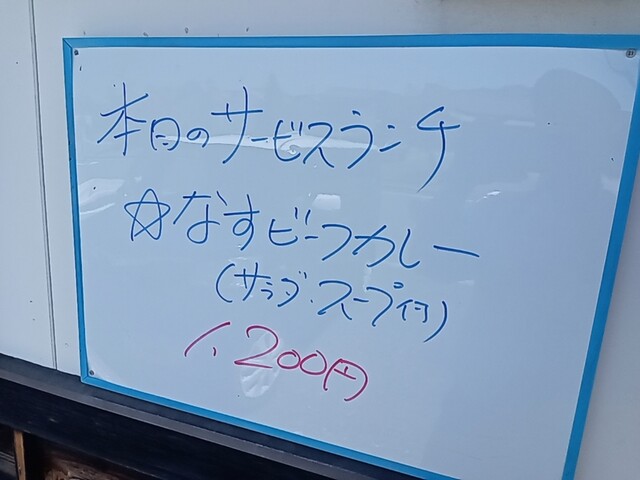 本日のサービスランチ
☆なすビーフカレー
(サラダ・スープ付)
1,200円